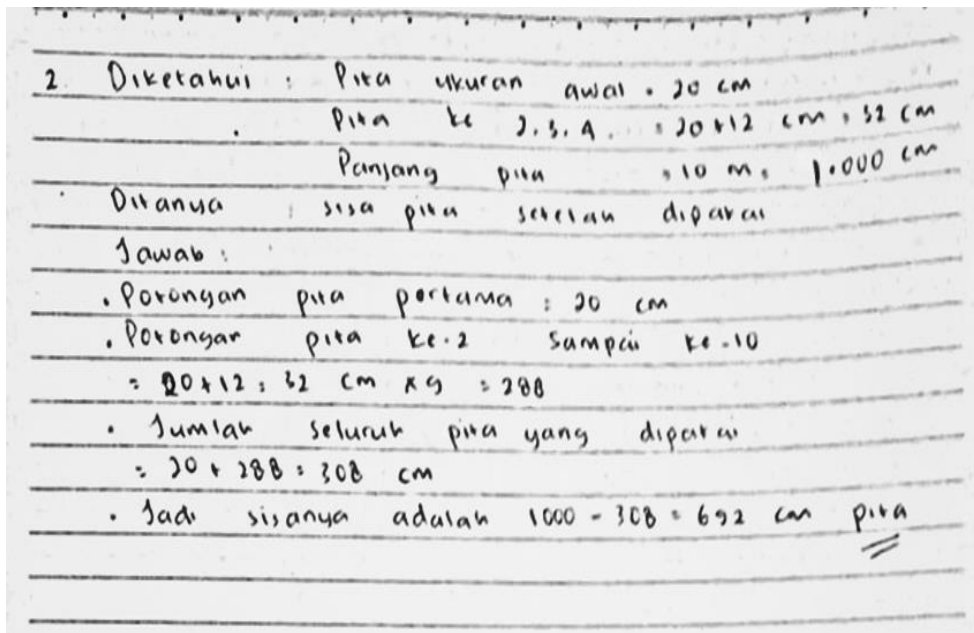 2. Diketahui : Pita ukuran awal = 20 cm
Pita ke 2.3.4. = 20+12 cm = 32 cm
Panjang pita = 10 m = 1.000 cm
Ditanya : sisa pita setelah dipakai
Jawab :
• Potongan pita pertama : 20 cm
• Potongan pita ke-2 sampai ke-10
= 20+12 = 32 cm x 9 = 288
• Jumlah seluruh pita yang dipakai
= 20 + 288 = 308 cm
• Jadi sisanya adalah 1000 - 308 = 692 cm pita